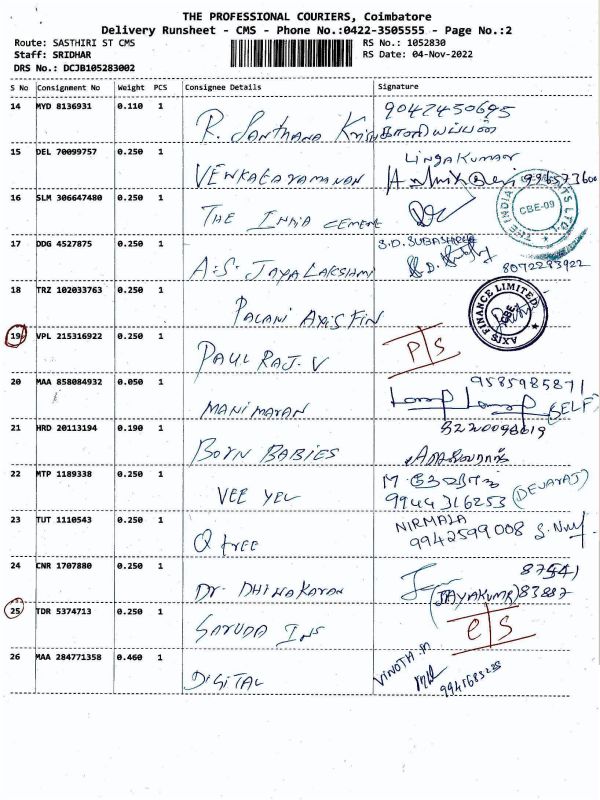 THE PROFESSIONAL COURIERS, Coimbatore
Delivery Runsheet - CMS - Phone No.:0422-3505555 - Page No.:2
Route: SASTHIRI ST CMS
RS No.: 1052830
Staff: SRIDHAR
RS Date: 04-Nov-2022
DRS No.: DCJB105283002
S No Consignment No Weight PCS Consignee Details Signature
14 MYD 8136931 0.110 1 R. Santhana 9042450695
15 DEL 70099757 0.250 1 VENKATARAMANAN LingaKumar
16 SLM 306647480 0.250 1 THE India CEMENT
THE INDIA CEMENTS LTD. CBE-09
17 DDG 4527875 0.250 1 A.S. JAYALAKSHMI S.D. SUBASHREE
8072293922
18 TRZ 102033763 0.250 1 PALANI AXIS FIN
AXIS FINANCE LIMITED CBE
19 VPL 215316922 0.250 1 PAUL RAJ. V P/S
20 MAA 858084932 0.050 1 MANIMARAN 9585985871
(SELF)
21 HRD 20113194 0.190 1 BORN BABIES
22 MTP 1189338 0.250 1 VEE YEL
9944316253 (DEVARAJ)
23 TUT 1110543 0.250 1 Q tree NIRMALA
9942599008
24 CNR 1707880 0.250 1 Dr. DHINAKARAN 87541
(JAYAKUMR) 83887
25 TDR 5374713 0.250 1 SARUDA INS
26 MAA 284771358 0.460 1 DIGITAL VINOTH.M